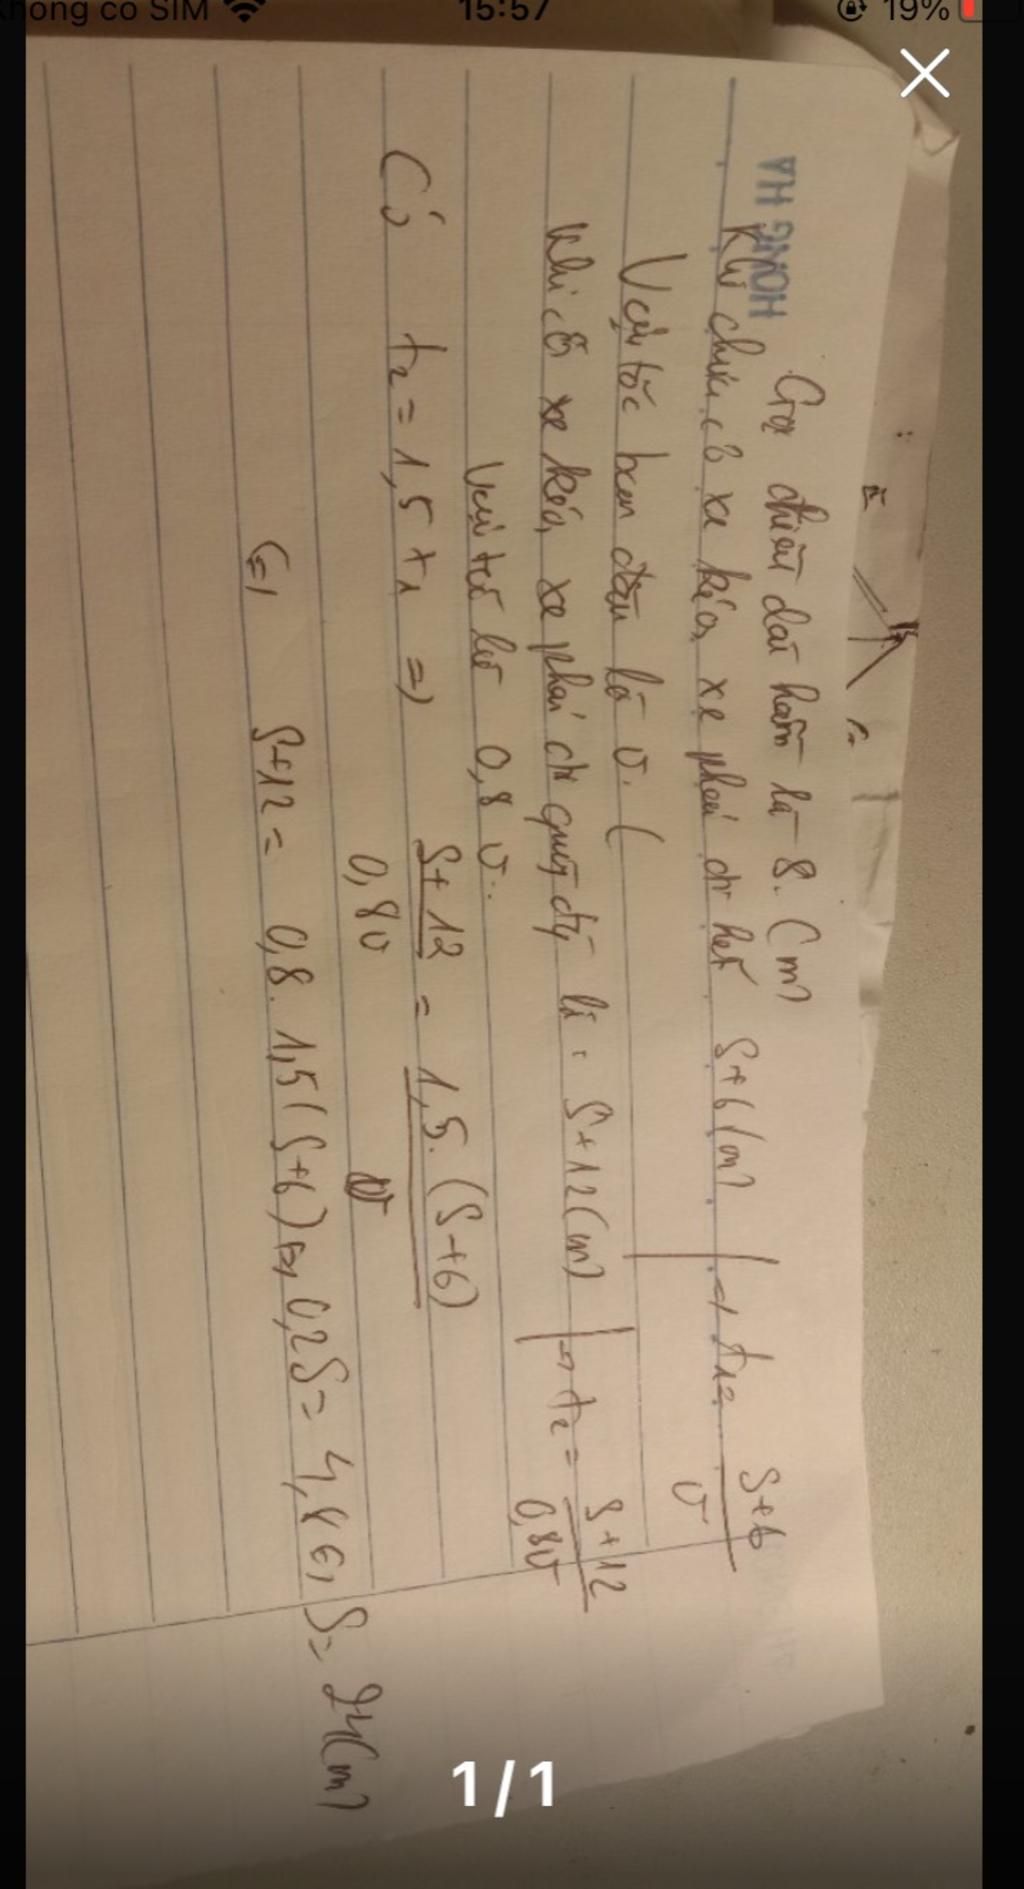 không có SIM 15:57 19%
HONG HA
Gọi chiều dài hầm là S. (m)
Khi chưa có xe kéo, xe phải đi hết S+6(m) => t1= S+6/v
Vận tốc ban đầu là v. (
Khi có xe kéo, xe phải đi quãng đg là: S+12(m) => t2 = S+12/0,8v
Vận tốc là 0,8 v..
Có t2 = 1,5 t1 => S+12/0,8v = 1,5.(S+6)/v
<=> S+12 = 0,8. 1,5(S+6) <=> 0,2S = 4,8 <=> S= 24(m)
1/1